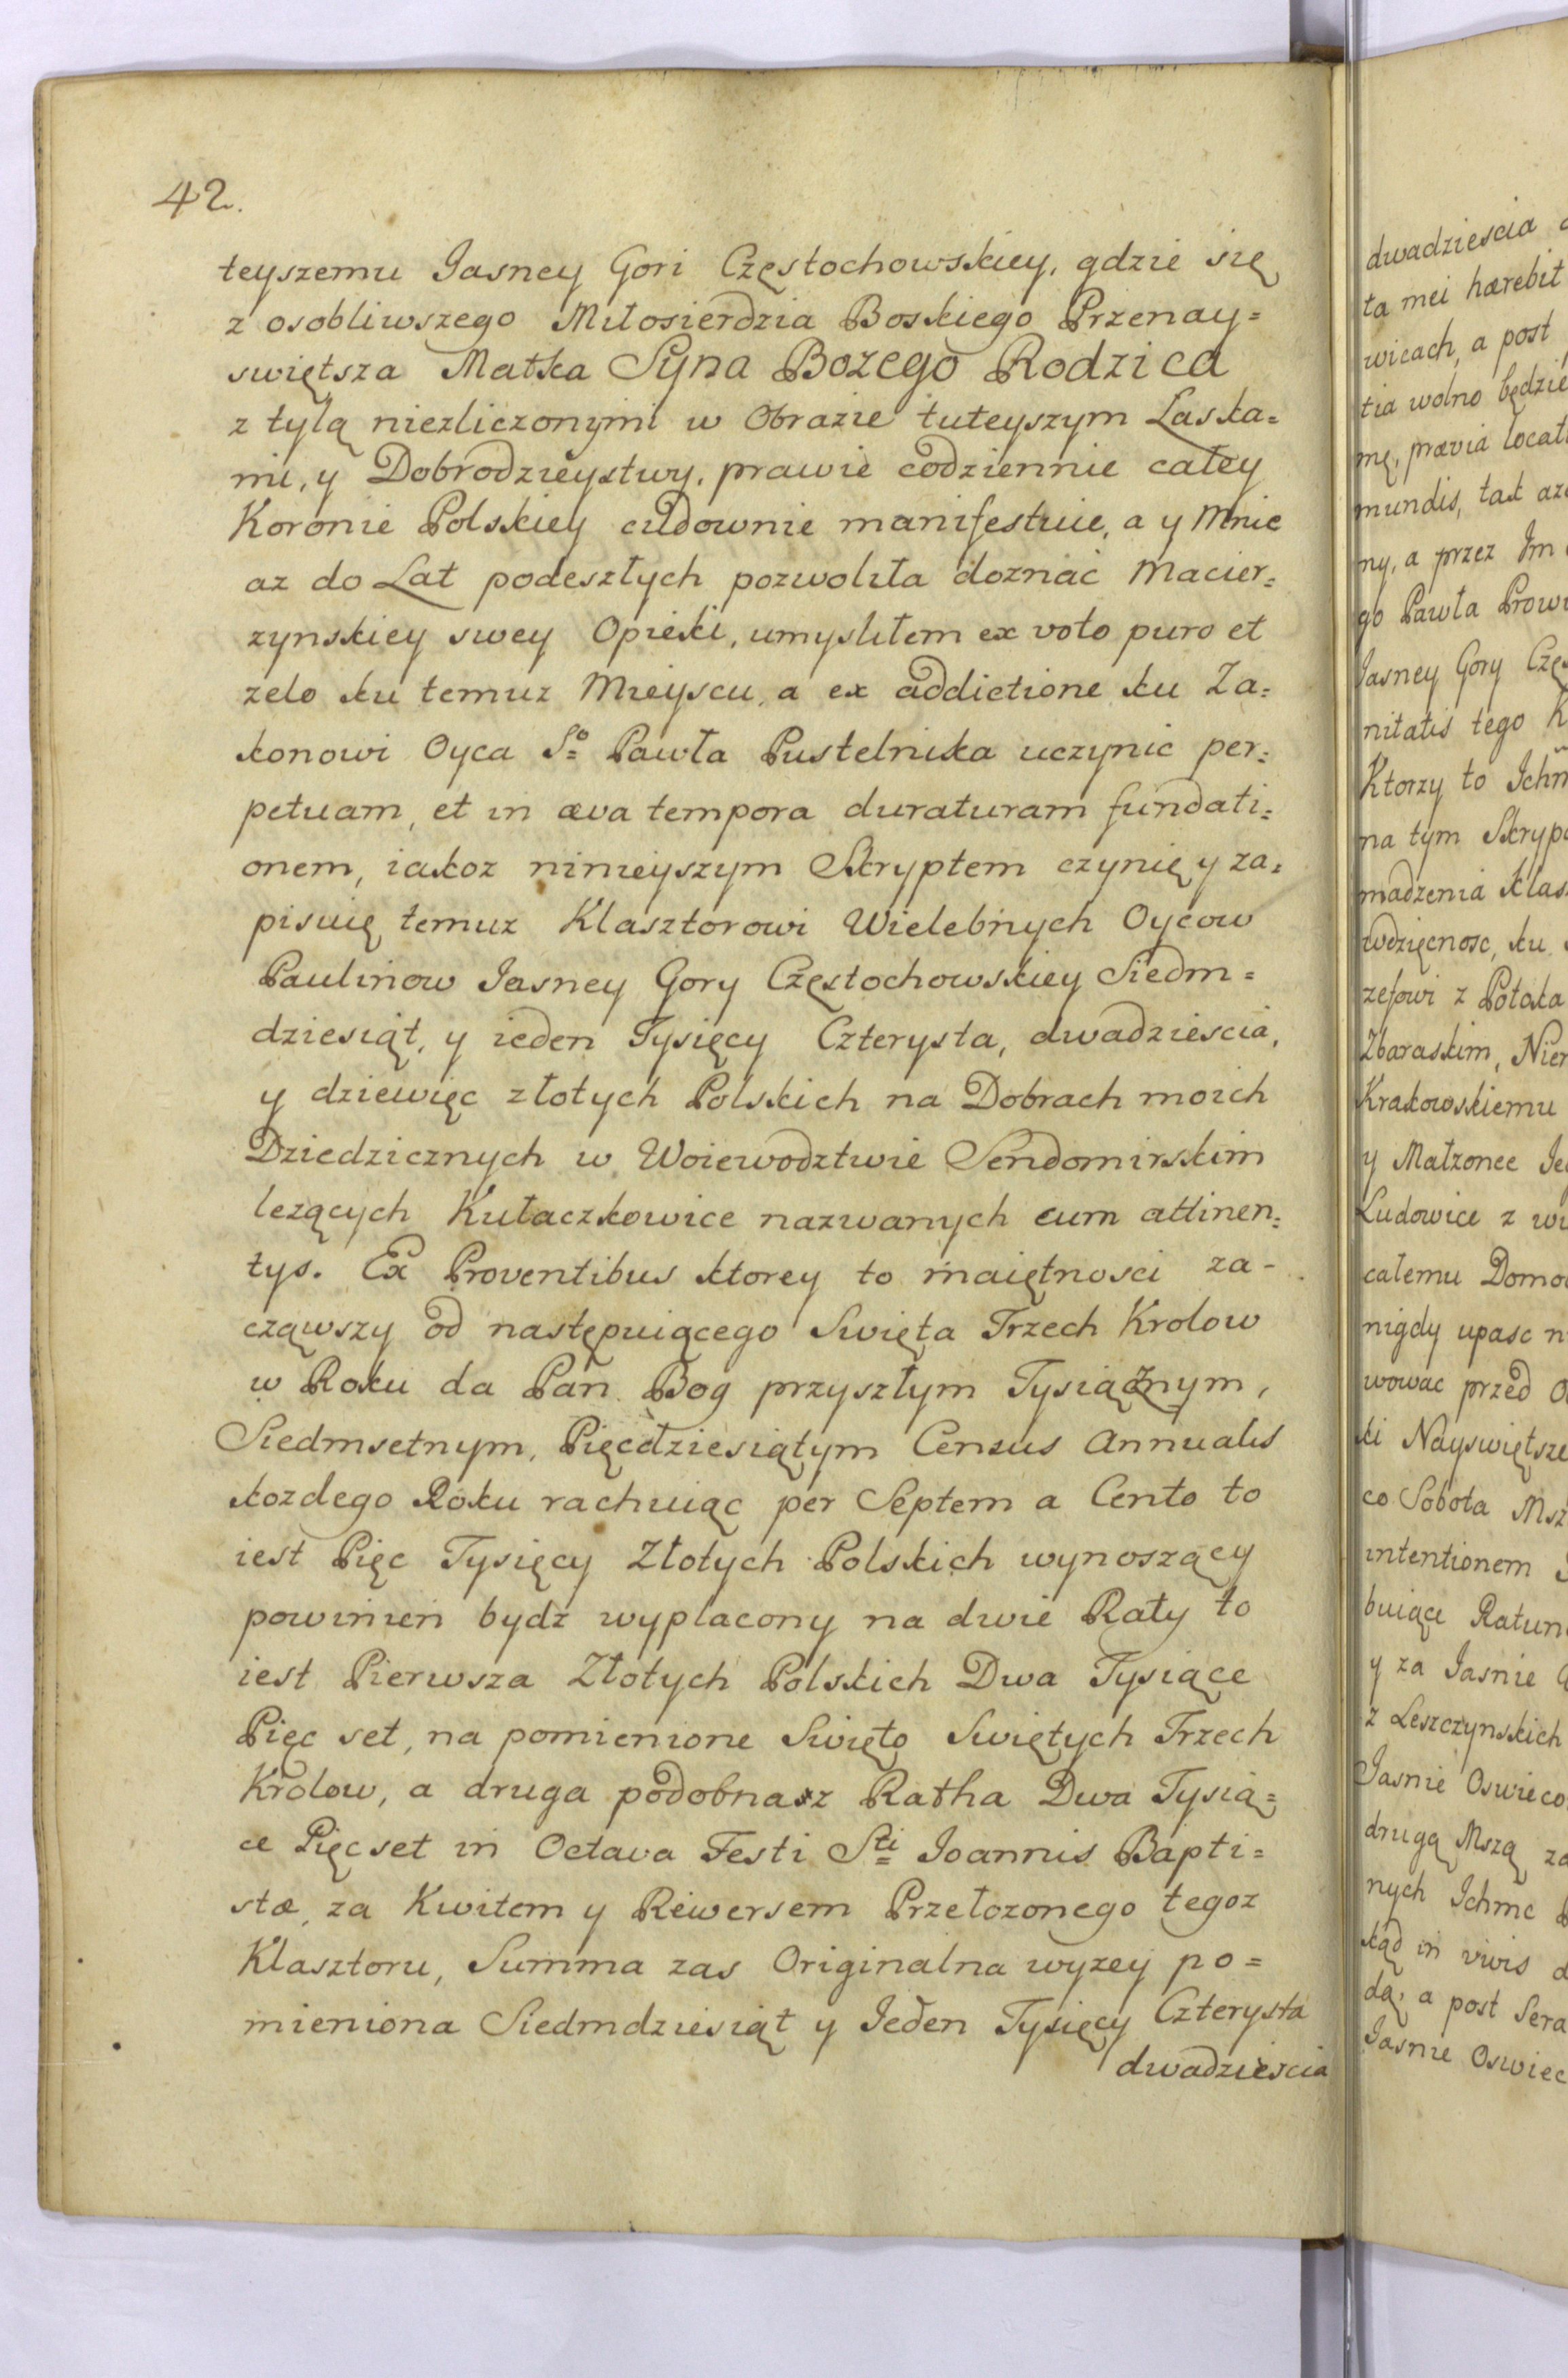 42.
teyszemu Jasney Gori Częstochowskiey, gdzie się
z osobliwszego Miłosierdzia Boskiego Przenay=
swiętsza Matka Syna Bozego Rodzica
z tylą niezliczonymi w Obrazie tuteyszym Laska=
mi, y Dobrodzieystwy, prawie codziennie całey
Koronie Polskiey cudownie manifestuie, a y Mnie
az do Lat podeszłych pozwoliła doznać Macier=
zynskiey swey Opieki, umysliłem ex voto puro et
zelo ku temuz Mieyscu, a ex addictione ku Za=
konowi Oyca So Pawła Pustelnika uczynic per=
petuam, et in æva tempora duraturam fundati=
onem, iakoz ninieyszym Skryptem czynię y za=
pisuię temuz Klasztorowi Wielebnych Oycow
Paulinow Jasney Gory Częstochowskiey Siedm=
dziesiąt, y ieden Tysięcy Czterysta, dwadziescia,
y dziewięc złotych Polskich na Dobrach moich
Dziedzicznych w Woiewodztwie Sendomirskim
lezących Kułaczkowice nazwanych cum attinen=
tys. Ex Proventibus ktorey to maiętnosci za-
cząwszy od następuiącego Swięta Trzech Krolow
w Roku da Pan Bog przyszłym Tysiącznym,
Siedmsetnym, Pięcdziesiątym Census Annualis
kozdego Roku rachuiąc per Septem a Cento to
iest Pięc Tysięcy Złotych Polskich wynoszący
powinien bydz wyplacony na dwie Raty to
iest Pierwsza Złotych Polskich Dwa Tysiące
Pięc set, na pomienione Swięto Swiętych Trzech
Krolow, a druga podobnasz Ratha Dwa Tysią=
ce Pięcset in Octava Festi Sti Joannis Bapti=
stæ, za Kwitem y Rewersem Przełozonego tegoz
Klasztoru, Summa zas Originalna wyzey po=
mieniona Siedmdziesiąt y Jeden Tysięcy Czterysta
dwadziescia
dwadziescia
ta mei hærebit
wicach, a post
tia wolno będzie
mę, prævia locati
mundis, tak az
ny, a przez Jm
go Pawła Prowi
Jasney Gory Czę
nitatis tego K
Ktorzy to Ichm
na tym Skryp
madzenia Klas
wdzięcnosc, ku
zefowi z Potoka
Zbaraskim, Nie
Krakowskiemu
y Małzonce Je
Ludowice z wi
całemu Domo
nigdy upasc n
wowac przed O
ki Nayswiętsze
co Sobota Msz
intentionem
buiące Ratun
y za Jasnie
z Leszczynskich
Jasnie Oswieco
drugą Mszą za
nych Ichmc
kąd in vivis d
dą, a post Sera
Jasnie Oswiec